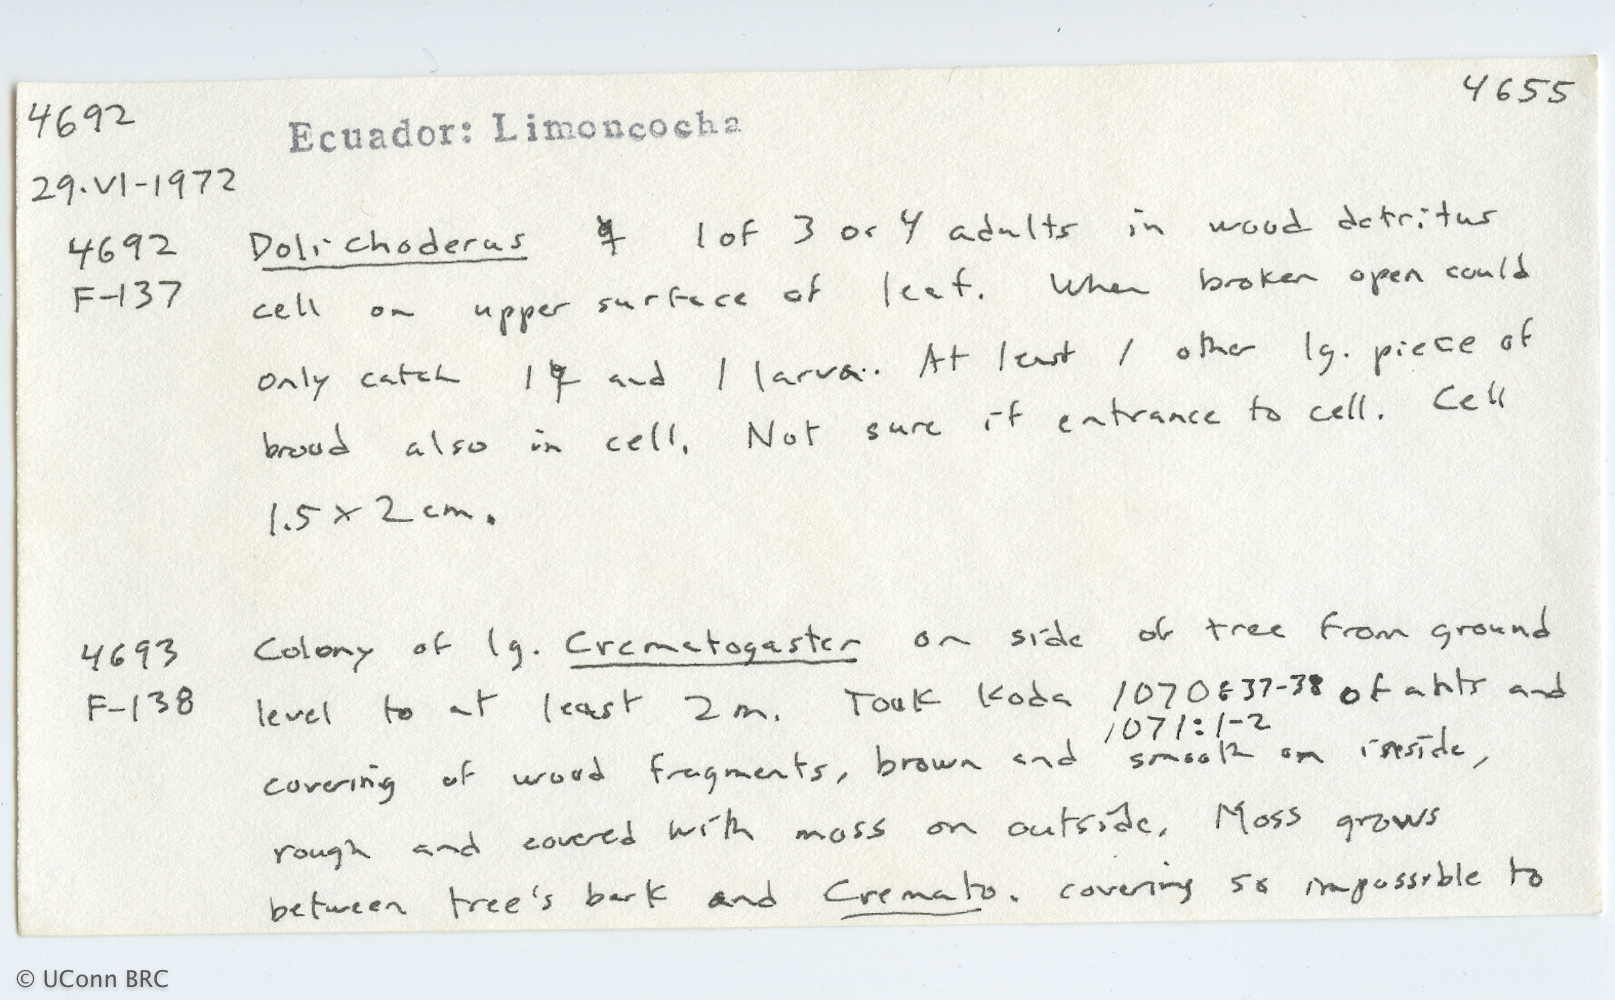 4692
4655
Ecuador: Limoncocha
29-VI-1972
4692 Dolichoderus ☿ 1 of 3 or 4 adults in wood detritus
F-137 cell on upper surface of leaf. When broken open could
only catch 1☿ and 1 larva. At least 1 other lg. piece of
brood also in cell. Not sure if entrance to cell. Cell
1.5 x 2 cm.
4693 Colony of lg. Crematogaster on side of tree from ground
F-138 level to at least 2 m. Took Koda 1070:37-38 of ants and
1071:1-2
covering of wood fragments, brown and smooth on inside,
rough and covered with moss on outside. Moss grows
between tree's bark and Cremato. covering so impossible to
© UConn BRC